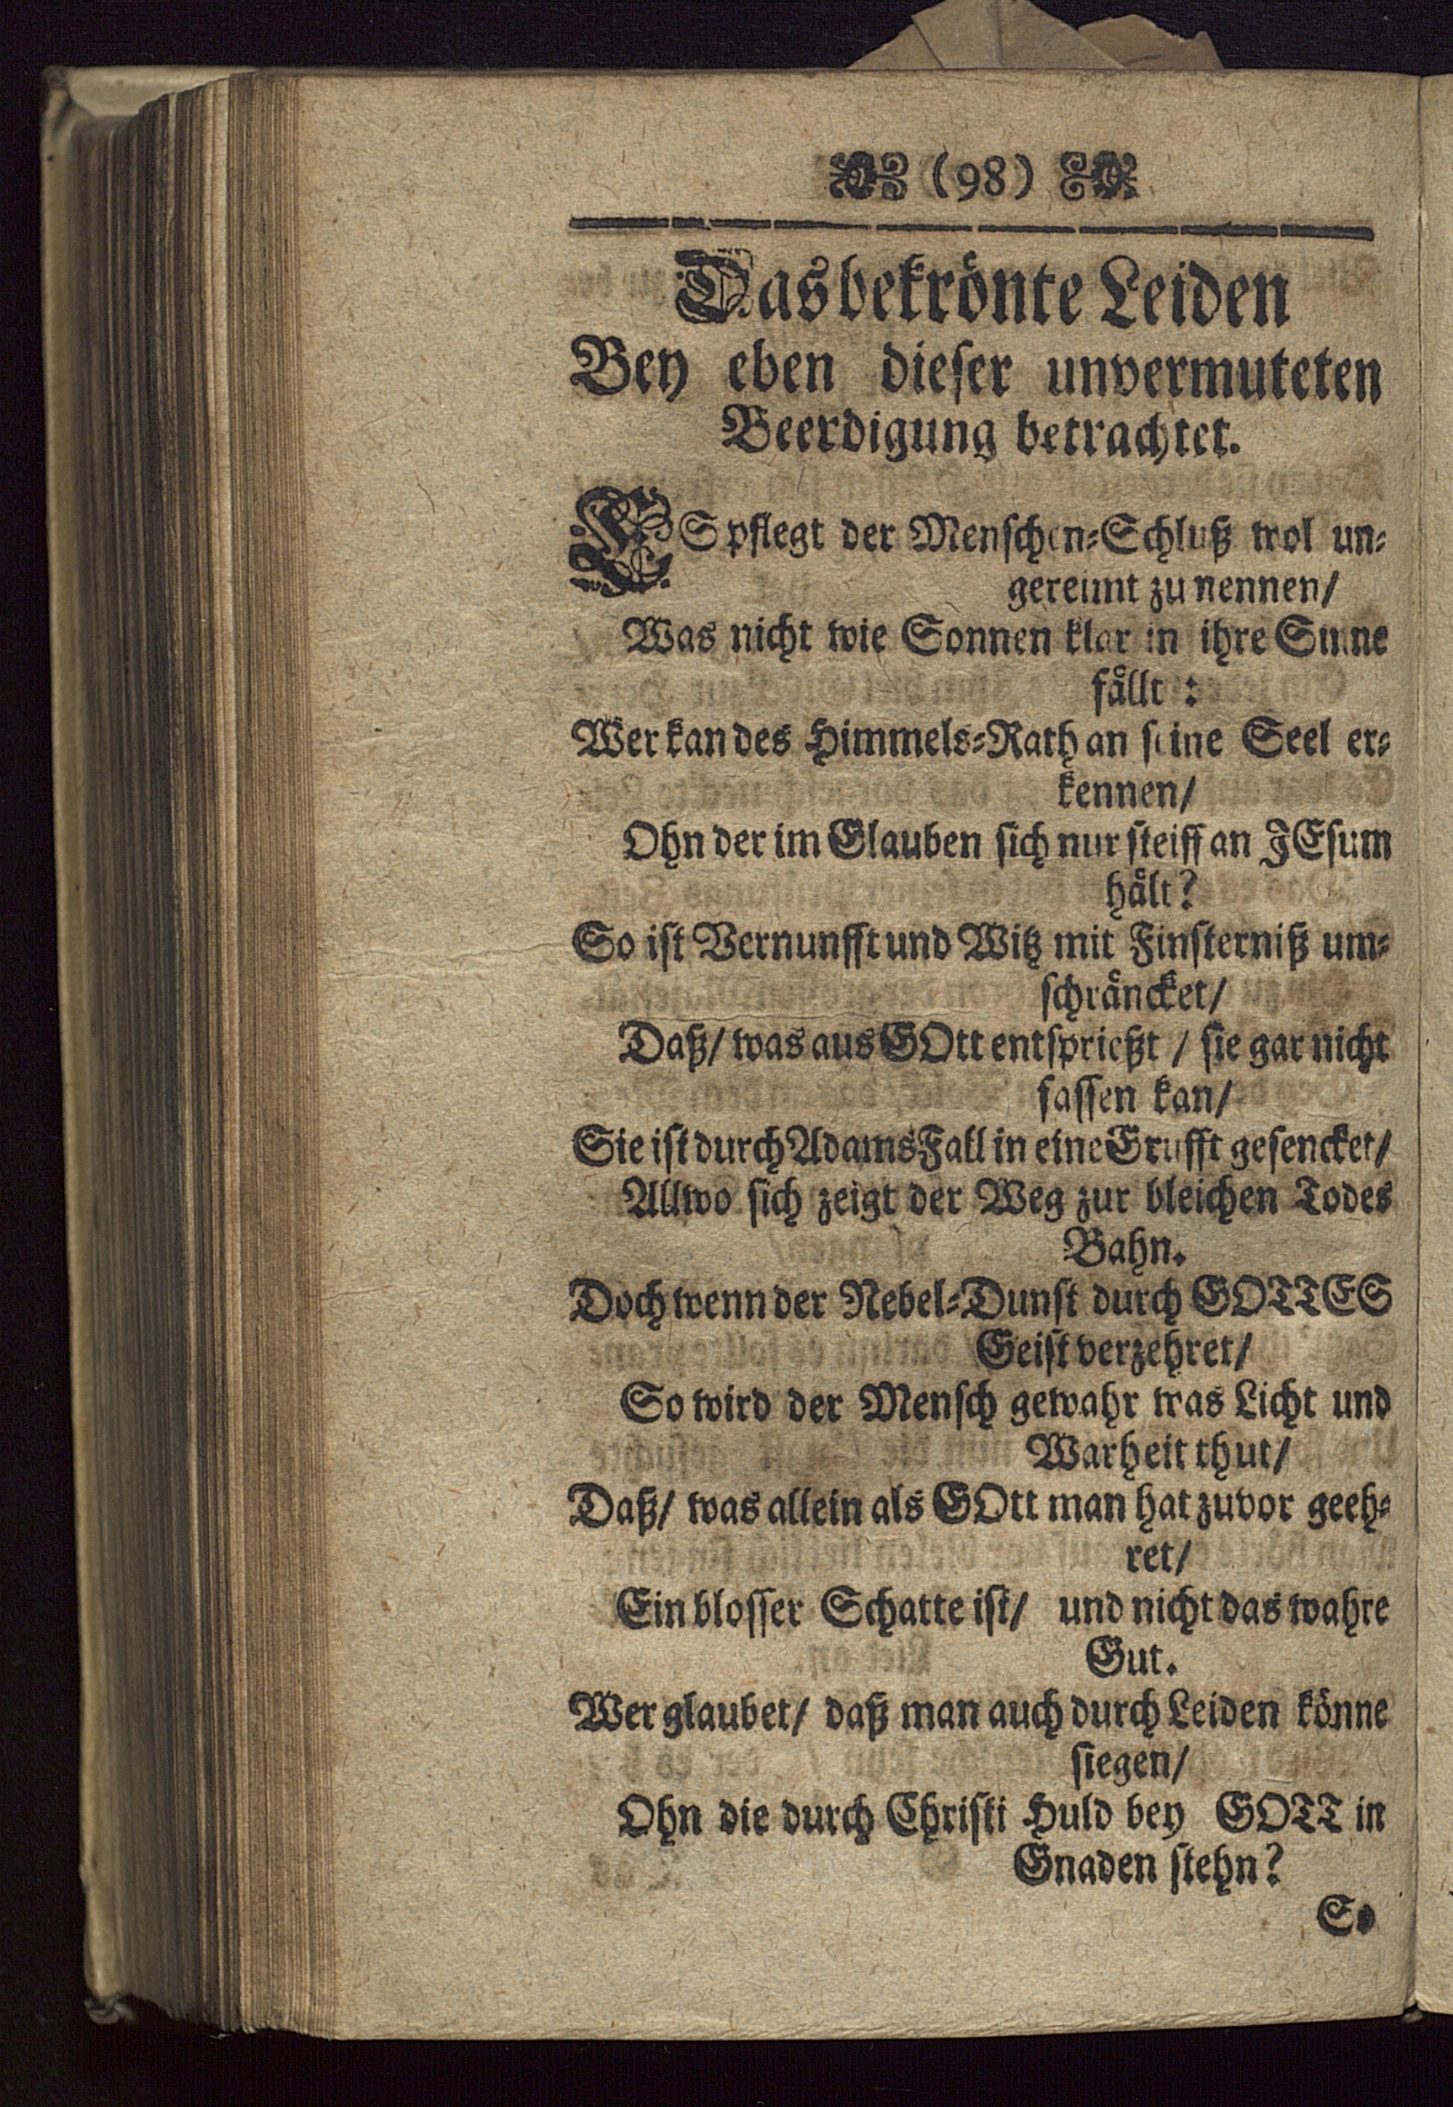 (98)
Das bekrönte Leiden
Bey eben dieser unvermuteten
Beerdigung betrachtet.
ES pflegt der Menschen-Schluß wol un-
gereimt zu nennen/
Was nicht wie Sonnen klar in ihre Sinne
fällt:
Wer kan des Himmels-Rath an seine Seel er-
kennen/
Ohn der im Glauben sich nur steiff an JEsum
hält?
So ist Vernunfft und Witz mit Finsterniß um-
schräncket/
Daß/ was aus GOtt entsprießt / sie gar nicht
fassen kan/
Sie ist durch Adams Fall in eine Grufft gesencket/
Allwo sich zeigt der Weg zur bleichen Todes
Bahn.
Doch wenn der Nebel-Dunst durch GOTTES
Geist verzehret/
So wird der Mensch gewahr was Licht und
Warheit thut/
Daß/ was allein als GOtt man hat zuvor geeh-
ret/
Ein blosser Schatte ist/ und nicht das wahre
Gut.
Wer glaubet/ daß man auch durch Leiden könne
siegen/
Ohn die durch Christi Huld bey GOTT in
Gnaden stehn?
So